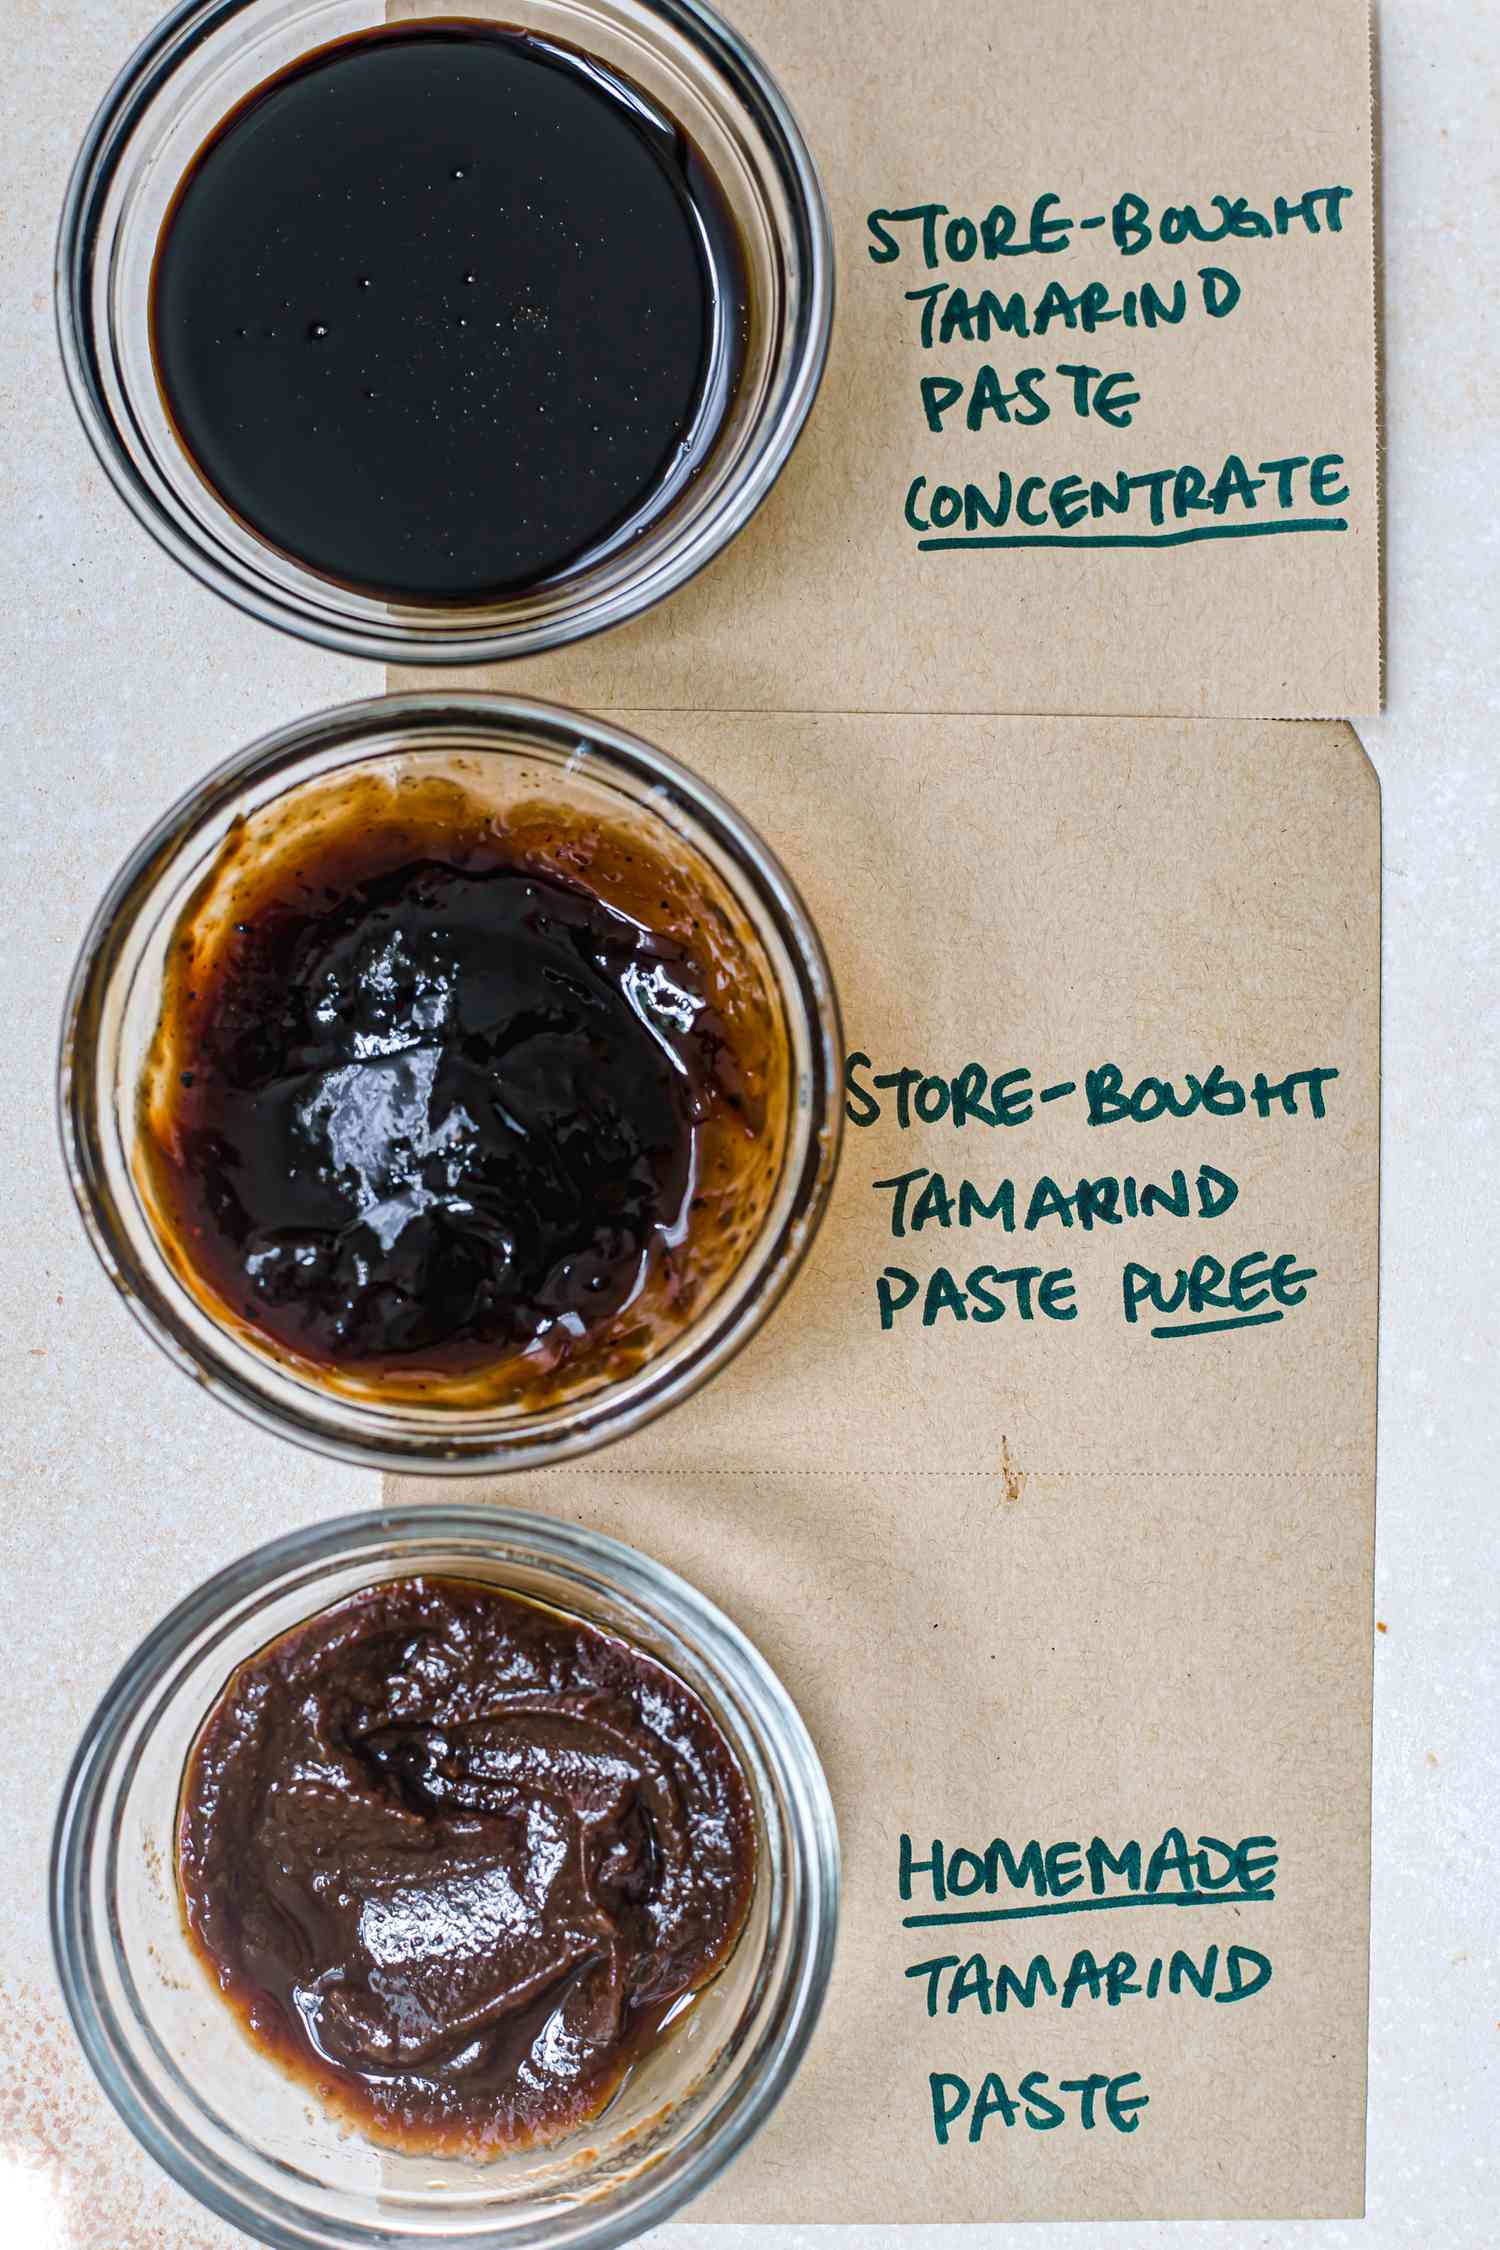 STORE-BOUGHT
TAMARIND
PASTE
CONCENTRATE
STORE-BOUGHT
TAMARIND
PASTE PUREE
HOMEMADE
TAMARIND
PASTE